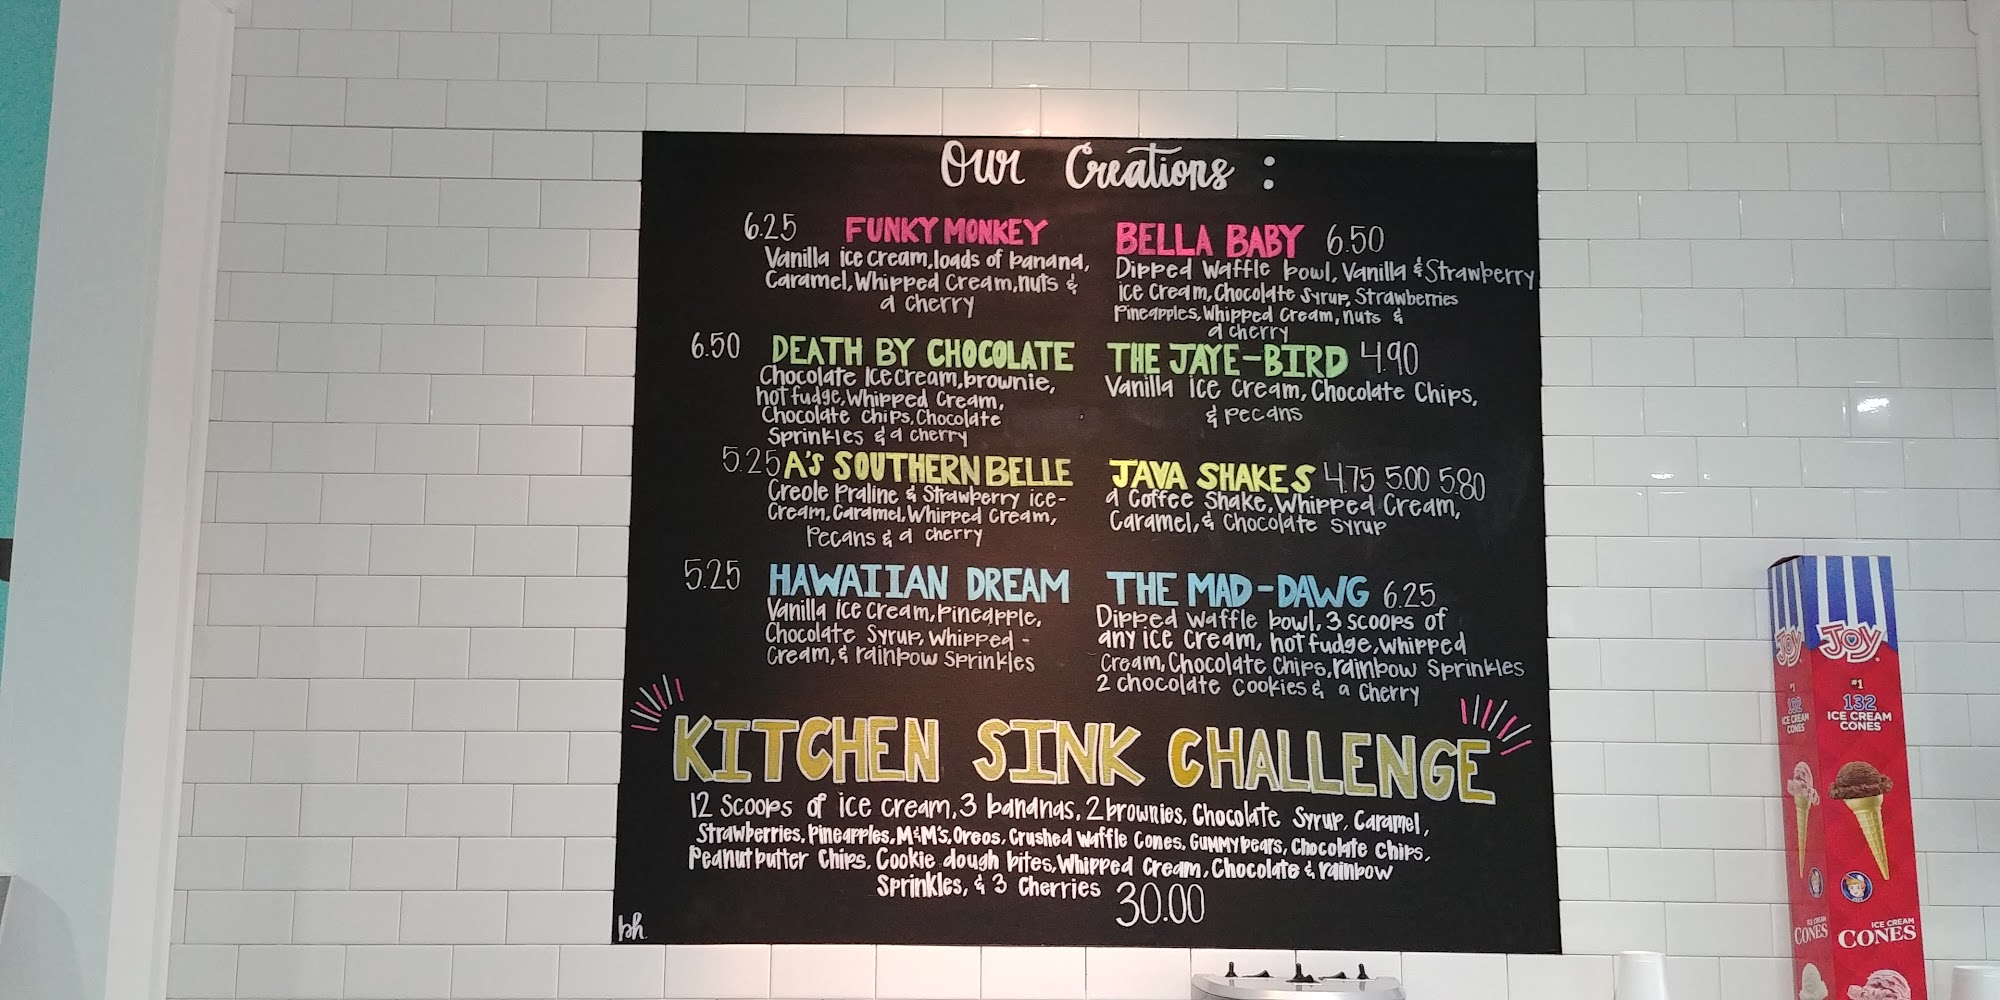 Our Creations :
6.25 FUNKY MONKEY
Vanilla ice cream, loads of banana,
Caramel, Whipped Cream, nuts &
a cherry
6.50 DEATH BY CHOCOLATE
Chocolate Ice Cream, brownie,
hot fudge, Whipped Cream,
Chocolate Chips, Chocolate
Sprinkles & a cherry
5.25 A'S SOUTHERN BELLE
Creole Praline & Strawberry ice-
Cream, Caramel, Whipped Cream,
Pecans & a cherry
5.25 HAWAIIAN DREAM
Vanilla Ice Cream, Pineapple,
Chocolate Syrup, Whipped -
Cream, & rainbow Sprinkles
BELLA BABY 6.50
Dipped Waffle bowl, Vanilla & Strawberry
Ice Cream, Chocolate Syrup, Strawberries
Pineapples, Whipped Cream, nuts &
a cherry
THE JAYE-BIRD 4.90
Vanilla Ice Cream, Chocolate Chips,
& Pecans
JAVA SHAKES 4.75 5.00 5.80
a Coffee Shake, Whipped Cream,
Caramel, & Chocolate Syrup
THE MAD-DAWG 6.25
Dipped Waffle bowl, 3 scoops of
any ice cream, hot fudge, Whipped
Cream, Chocolate Chips, rainbow Sprinkles
2 chocolate Cookies & a Cherry
KITCHEN SINK CHALLENGE
12 Scoops of ice cream, 3 bananas, 2 brownies, Chocolate Syrup, Caramel,
Strawberries, Pineapples, M&M's, Oreos, Crushed Waffle Cones, Gummybears, Chocolate Chips,
Peanutbutter Chips, Cookie dough bites, Whipped Cream, Chocolate & rainbow
Sprinkles, & 3 Cherries 30.00
bh.
JOY
#1
132
ICE CREAM
CONES
ICE CREAM
CONES
JOY
#1
132
ICE CREAM
CONES
ICE CREAM
CONES